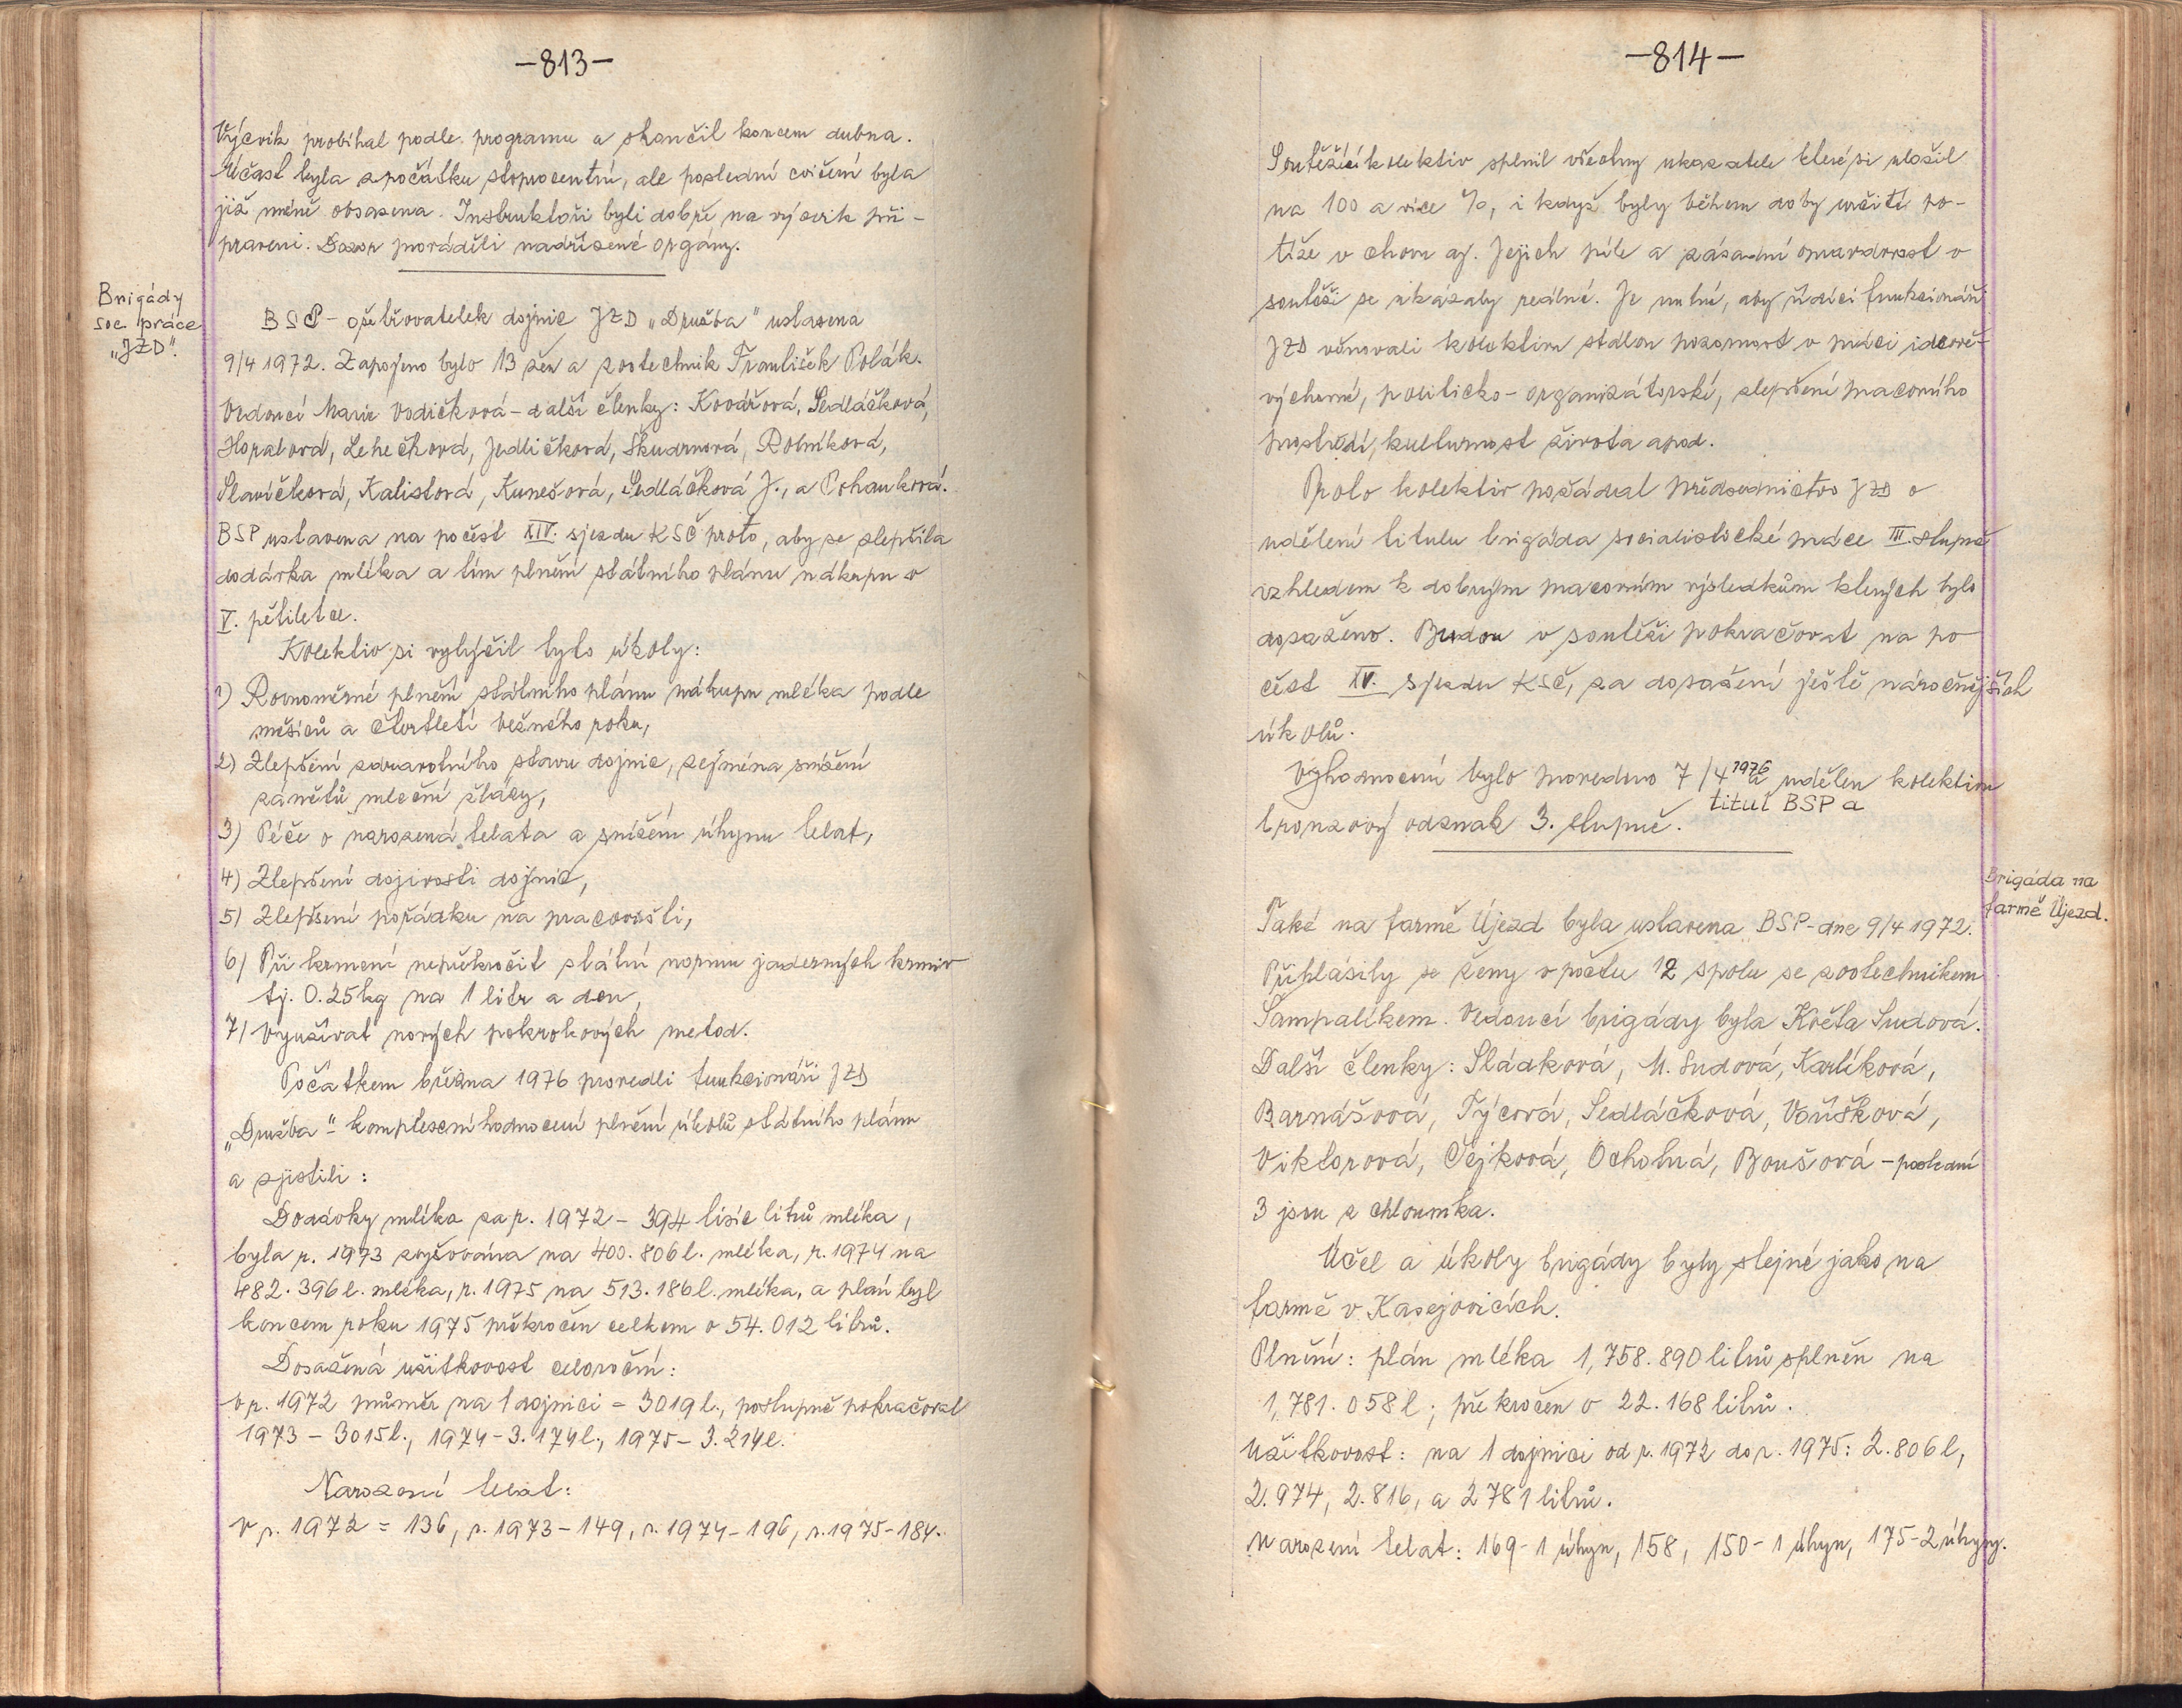 -813-
Výcvik probíhal podle programu a skončil koncem dubna.
Účast byla zpočátku stoprocentní, ale poslední cvičení byla
již méně obsazena. Instruktoři byli dobře na výcvik při-
praveni. Dozor prováděli nadřízené orgány.
Brigády
soc. práce
„JZD".
BSP - ošetřovatelek dojnic JZD „Družba" ustavena
9/4 1972. Zapojeno bylo 13 žen a zootechnik František Polák.
Vedoucí Marie Vodičková - další členky: Kovářová, Sedláčková,
Hopalová, Lehečková, Jedličková, Škudrnová, Rolníková,
Slavíčková, Kalistová, Kunešová, Sedláčková J., a Pohanková.
BSP ustavena na počest XIV. sjezdu KSČ proto, aby se zlepšila
dodávka mléka a tím plnění státního plánu nákupu v
V. pětiletce.
Kolektiv si vytyčil tyto úkoly:
1) Rovnoměrné plnění státního plánu nákupu mléka podle
měsíců a čtvrtletí bežného roku,
2) Zlepšení zdravotního stavu dojnic, zejména snížení
zánětů mlečné žlázy,
3) Péče o narozená telata a snížení úhynu telat,
4) Zlepšení dojivosti dojnic,
5) Zlepšení pořádku na pracovišti,
6) Při krmení nepřekročit státní normu jaderných krmiv
tj. 0.25kg na 1 litr a den,
7) Využívat nových pokrokových metod.
Počátkem března 1976 provedli funkcionáři JZD
„Družba" komplexní hodnocení plnění úkolů státního plánu
a zjistili:
Dodávky mléka za r. 1972 - 394 tisíc litrů mléka,
byla r. 1973 zvyšována na 400.806 l. mléka, r. 1974 na
482.396 l. mléka, r. 1975 na 513.186 l. mléka, a plán byl
koncem roku 1975 překročen celkem o 54.012 litrů.
Dosažená užitkovost celoroční:
v r. 1972 průměr na 1 dojnici = 3019 l., postupně pokračoval
1973 - 3015 l., 1974 - 3.174 l., 1975 - 3.214 l.
Narození telat:
V r. 1972 = 136, r. 1973 - 149, r. 1974 - 196, r. 1975 - 184.
-814-
Soutěžící kolektiv splnil všechny ukazatele které si uložil
na 100 a více %, i když byly během doby určité po-
tíže v chovu aj. Jejich píle a zásadní opravdovost v
soutěži se ukázaly reálné. Je nutné, aby řídící funkcionáři
JZD věnovali kolektivu stálou pozornost v práci ideově-
výchovné, politicko-organizátorské, zlepšení pracovního
prostředí, kulturnost života apod.
Proto kolektiv požádal předsednictvo JZD o
udělení titulu brigáda socialistické práce III. stupně
vzhledem k dobrým pracovním výsledkům kterých bylo
dosaženo. Budou v soutěži pokračovat na po
čest XV. sjezdu KSČ, za dosažení ještě náročnějších
úkolů.
Vyhodnocení bylo provedeno 7/4 1976 a udělen kolektivu
titul BSP a
bronzový odznak 3. stupně.
Brigáda na
farmě Újezd.
Také na farmě Újezd byla ustavena BSP - dne 9/4 1972.
Přihlásily se ženy v počtu 12 spolu se zootechnikem
Šampalíkem. Vedoucí brigády byla Květa Sudová.
Další členky: Sládková, M. Sudová, Karlíková,
Barnášová, Týcová, Sedláčková, Voříšková,
Viktorová, Čejková, Ocholná, Boušová - poslední
3 jsou z Chloumka.
Účel a úkoly brigády byly stejné jako na
farmě v Kasejovicích.
Plnění: plán mléka 1,758.890 litrů splněn na
1,781.058 l; překročen o 22.168 litrů.
Užitkovost: na 1 dojnici od r. 1972 do r. 1975: 2.806 l,
2.974, 2.816, a 2781 litrů.
Narození telat: 169 - 1 úhyn, 158, 150 - 1 úhyn, 175 - 2 úhyny.